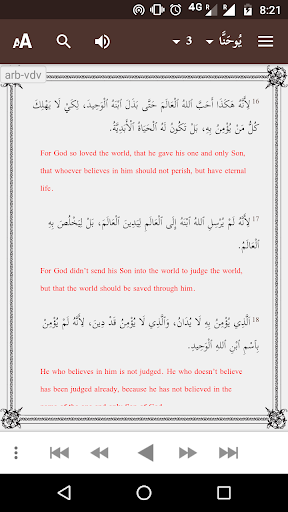 4G R 8:21
AA 3 يُوحَنَّا
arb-vdv
16 لِأَنَّهُ هَكَذَا أَحَبَّ ٱللهُ ٱلْعَالَمَ حَتَّى بَذَلَ ٱبْنَهُ ٱلْوَحِيدَ، لِكَيْ لَا يَهْلِكَ
كُلُّ مَنْ يُؤْمِنُ بِهِ، بَلْ تَكُونُ لَهُ ٱلْحَيَاةُ ٱلْأَبَدِيَّةُ.
For God so loved the world, that he gave his one and only Son,
that whoever believes in him should not perish, but have eternal
life.
17 لِأَنَّهُ لَمْ يُرْسِلِ ٱللهُ ٱبْنَهُ إِلَى ٱلْعَالَمِ لِيَدِينَ ٱلْعَالَمَ، بَلْ لِيَخْلُصَ بِهِ
ٱلْعَالَمُ.
For God didn't send his Son into the world to judge the world,
but that the world should be saved through him.
18 اَلَّذِي يُؤْمِنُ بِهِ لَا يُدَانُ، وَٱلَّذِي لَا يُؤْمِنُ قَدْ دِينَ، لِأَنَّهُ لَمْ يُؤْمِنْ
بِٱسْمِ ٱبْنِ ٱللهِ ٱلْوَحِيدِ.
He who believes in him is not judged. He who doesn't believe
has been judged already, because he has not believed in the
name of the one and only Son of God.